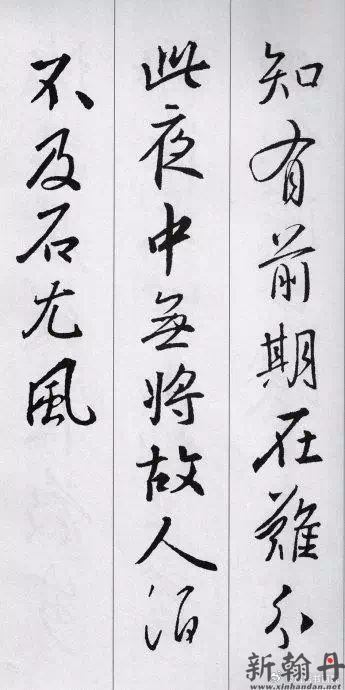 知有前期在難分
此夜中無將故人酒
不及石尤風
新翰丹
www.xinhandan.net